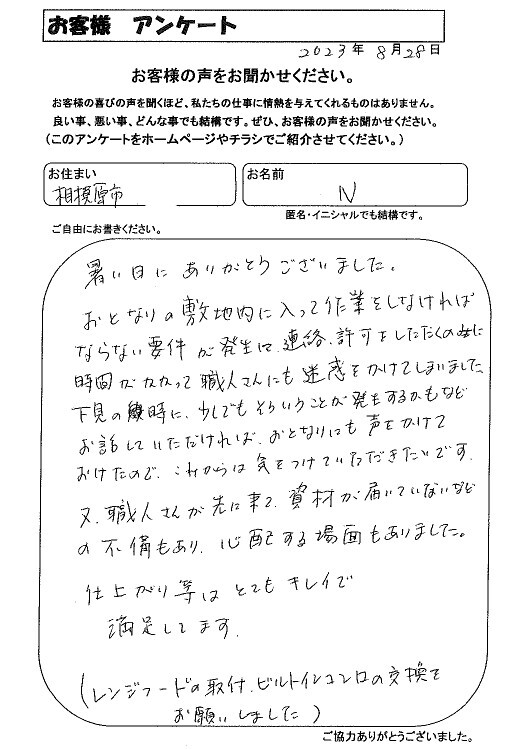 お客様 アンケート
2023年 8月28日
お客様の声をお聞かせください。
お客様の喜びの声を聞くほど、私たちの仕事に情熱を与えてくれるものはありません。
良い事、悪い事、どんな事でも結構です。ぜひ、お客様の声をお聞かせください。
（このアンケートをホームページやチラシでご紹介させてください。）
お住まい
相模原市
お名前
N
匿名・イニシャルでも結構です。
ご自由にお書きください。
暑い日にありがとうございました。
おとなりの敷地内に入って作業をしなければ
ならない要件が発生し、連絡、許可をしただくのに
時間がかかって職人さんにも迷惑をかけてしまいました
下見の時に、少しでもそういうことが発生するかもなど
お話していただければ、おとなりにも声をかけて
おけたので、これからは気をつけていただきたいです。
又、職人さんが先に来て、資材が届いていないなど
の不備もあり、心配する場面もありました。
仕上がり等はとてもキレイで
満足してます。
（レンジフードの取付、ビルトインコンロの交換を
お願いしました）
ご協力ありがとうございました。